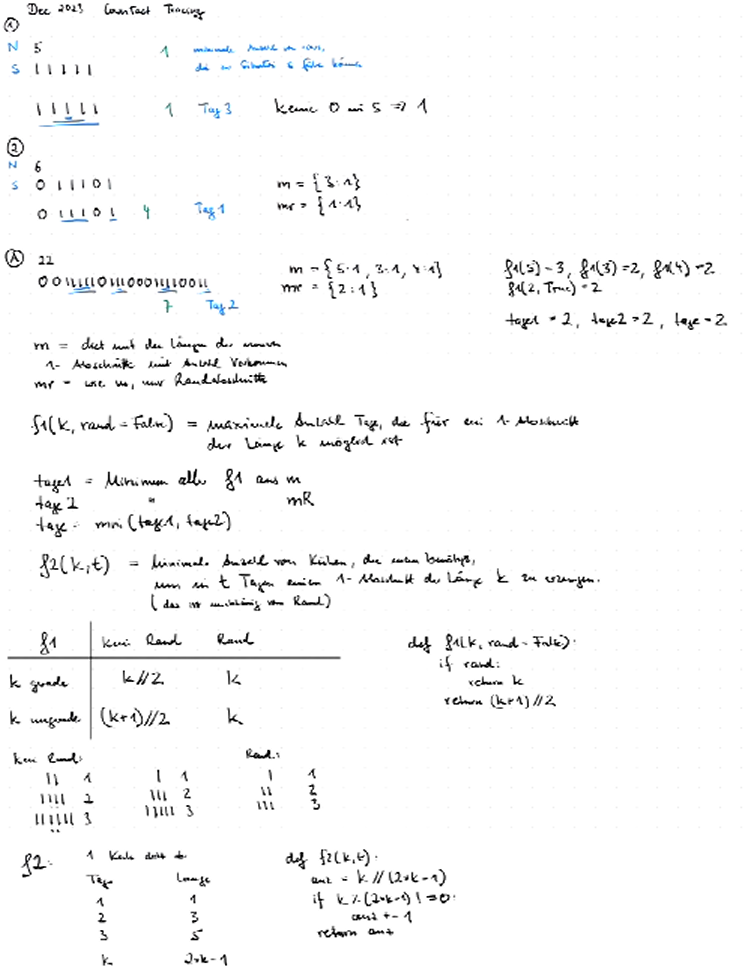 Dec 2023 Contact Tracing
①
N 5 1 minimale Anzahl von Kühen,
S 1 1 1 1 1 die zu Situation S führen können
1 1 1 1 1 1 Tag 3 keine 0 in S => 1
②
N 6
S 0 1 1 1 0 1 m = {3:1}
0 1 1 1 0 1 4 Tag 1 mr = {1:1}
Ⓐ 22
0 0 1 1 1 1 1 0 1 1 1 0 0 0 1 1 1 1 0 0 1 1
7 Tag 2
m = {5:1, 3:1, 4:1}
mr = {2:1}
f1(5) = 3, f1(3) = 2, f1(4) = 2
f1(2, True) = 2
tage1 = 2, tage2 = 2, tage = 2
m = dict mit den Längen der inneren
1-Abschnitte mit Anzahl Vorkommen
mr = wie m, nur Randabschnitte
f1(k, rand = False) = maximale Anzahl Tage, die für ein 1-Abschnitt
der Länge k möglich ist
tage1 = Minimum aller f1 aus m
tage2 " mR
tage = min(tage1, tage2)
f2(k,t) = minimale Anzahl von Kühen, die man benötigt,
um in t Tagen einen 1-Abschnitt der Länge k zu erzeugen.
(das ist unabhängig vom Rand)
f1 Kein Rand Rand
k gerade k//2 k
k ungerade (k+1)//2 k
def f1(k, rand = False):
if rand:
return k
return (k+1)//2
Kein Rand: Rand:
11 1 1 1 1 1
1111 2 111 2 11 2
111111 3 11111 3 111 3
f2: 1 Kuh
Tage Länge
1 1
2 3
3 5
k 2*k-1
def f2(k,t):
anz = k // (2*k-1)
if k % (2*k-1) != 0:
anz += 1
return anz